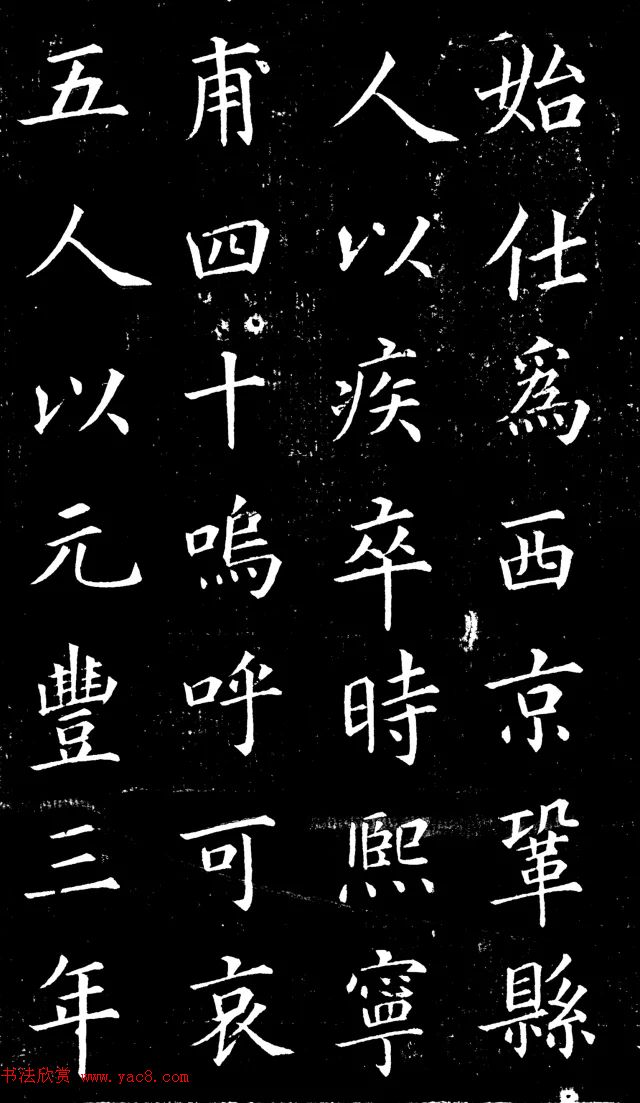 始仕爲西京鞏縣
人以疾卒時熙寧
甫四十嗚呼可哀
五人以元豐三年
书法欣赏 www.yac8.com